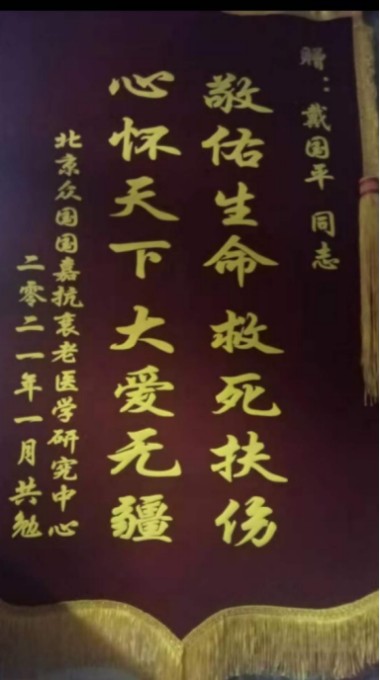 赠：戴国平 同志
敬佑生命救死扶伤
心怀天下大爱无疆
北京众国国嘉抗衰老医学研究中心
二零二一年一月共勉